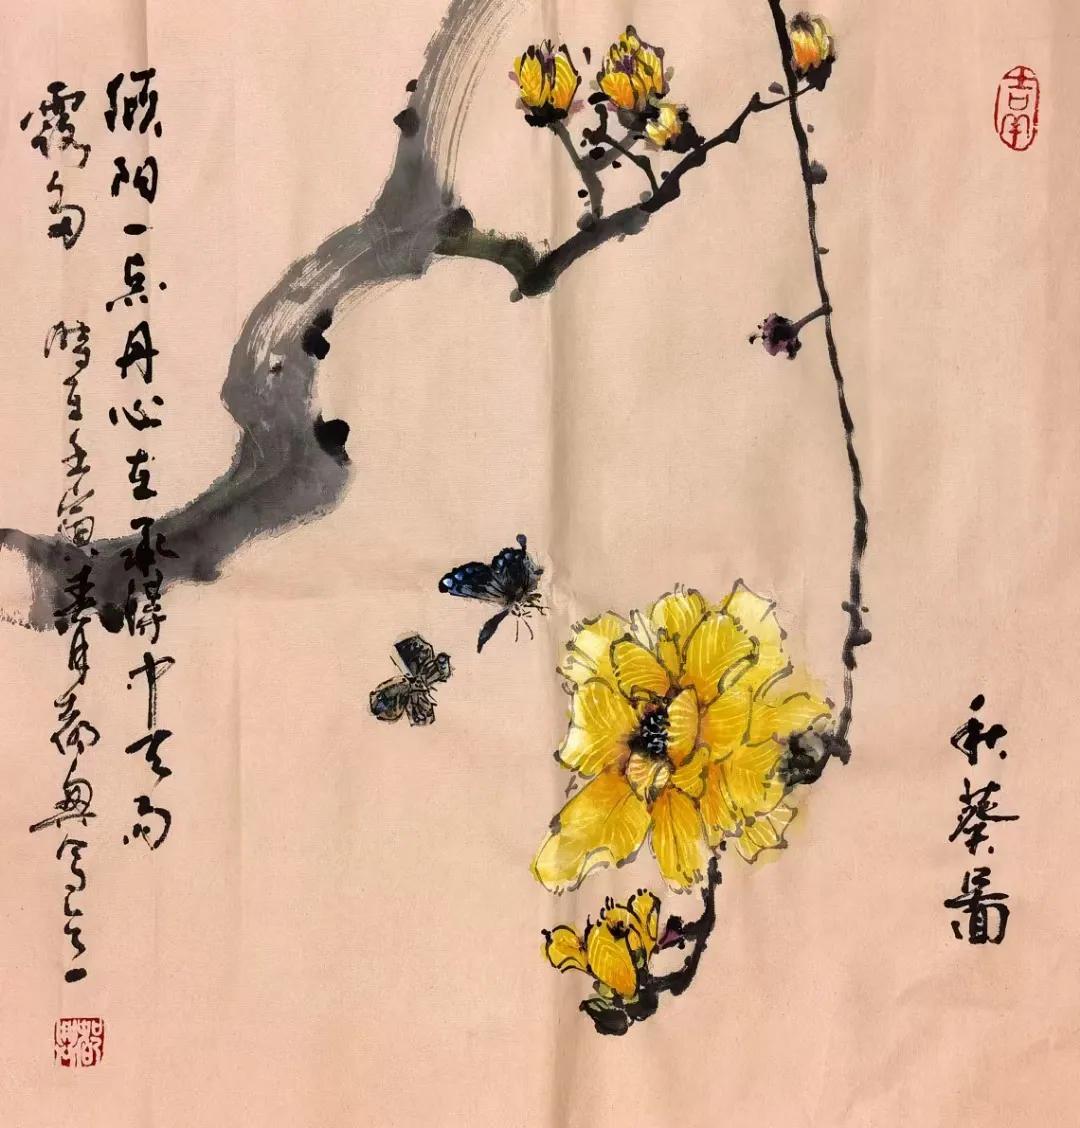 秋葵圖
倾阳一点丹心在承得中天雨
露多 時在壬寅春月写之